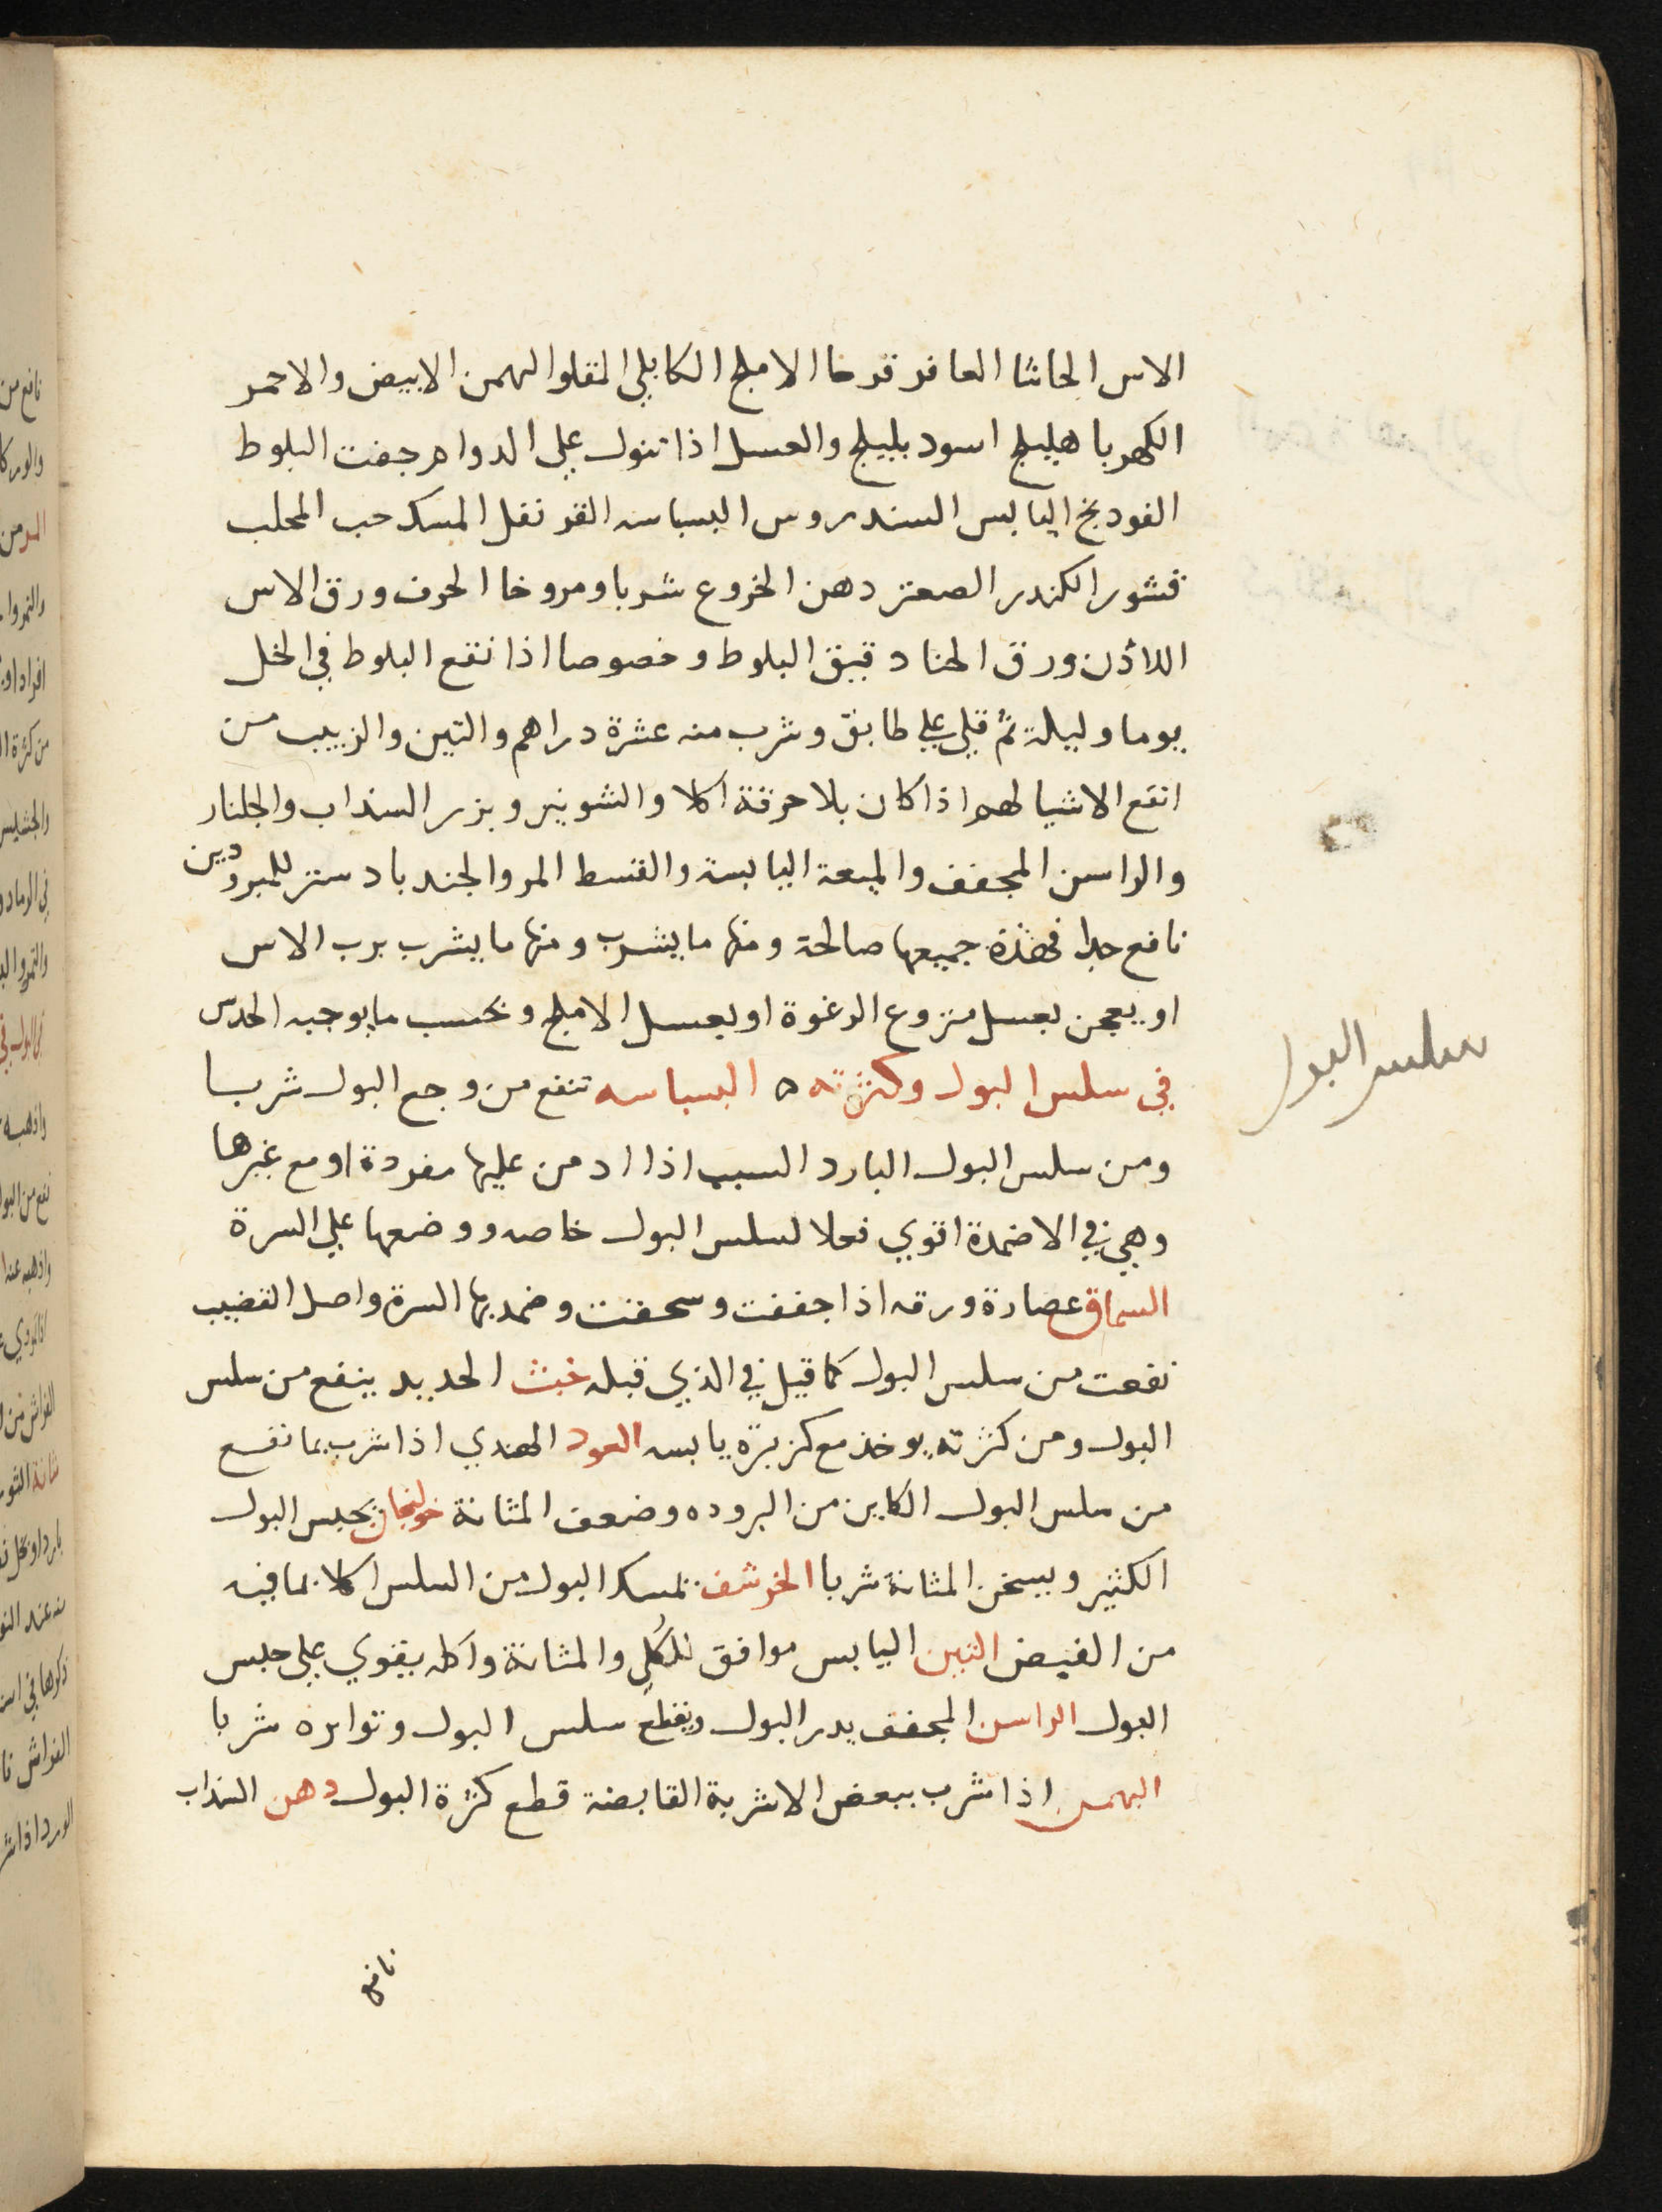 الاس الحاشا العاقرقرحا الاملج الكابلي المقلو البهمن الابيض والاحمر
الكهربا هليلج اسود بليلج والعسل اذا تنول علي الدوام جفت البلوط
الفودنج اليابس السندروس البسباسه القرنفل المسك حب المحلب
قشور الكندر الصعتر دهن الخروع شربا ومروخا الحرف ورق الاس
اللاذن ورق الحنا دقيق البلوط وخصوصا اذا نقع البلوط في الخل
يوما وليلة ثم قلي علي طابق وشرب منه عشرة دراهم والتين والزبيب من
انفع الاشيا لهم اذا كان بلا حرقة اكلا والشونيز وبزر السداب والجلنار
والراسن المجفف والميعة اليابسة والقسط المر والجندبادستر للمبرودين
نافع جدا فهذة جميعها صالحة ومنها ما يشرب ومنها ما يشرب برب الاس
او يعجن بعسل منزوع الرغوة او بعسل الاملج وبحسب ما يوجبه الحدس
في سلس البول وكثرته ه البسباسه تنفع من وجع البول شربا
ومن سلس البول البارد السبب اذا ادمن عليها مفردة او مع غيرها
وهي في الاضمدة اقوي فعلا لسلس البول خاصه ووضعها علي السرة
السماق عصارة ورقه اذا جففت وسحقت وضمد بها السرة واصل القضيب
نفعت من سلس البول كما قيل في الذي قبله خبث الحديد ينفع من سلس
البول ومن كثرته يوخذ مع كزبرة يابسه العود الهندي اذا شرب بما نفع
من سلس البول الكاين من البروده وضعف المثانة خولنجان يحبس البول
الكثير ويسخن المثانة شربا الخرشف يمسك البول من السلس اكلا بما فيه
من القبض التين اليابس موافق للكلي والمثانة واكله يقوي علي حبس
البول الراسن المجفف يدر البول ويقطع سلس البول وتواتره شربا
البهمن اذا شرب ببعض الاشربة القابضة قطع كثرة البول دهن السداب
نافع
سلس البول